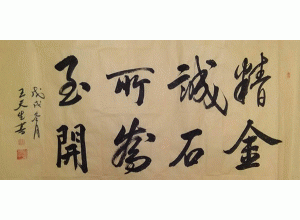 精誠所至
金石為開
戊戌冬月
王天生書